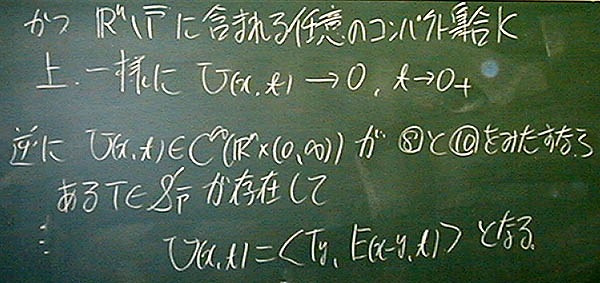 かつ ℝⁿ\Γ̅ に含まれる任意のコンパクト集合K
上、一様に U(x,t)→0, t→0+
逆に U(x,t)∈C^∞(ℝⁿ×(0,∞)) が ⑧と⑩をみたすなら
あるT∈S'_Γ̅ が存在して
⋮ U(x,t)=⟨T_y, E(x-y,t)⟩ となる